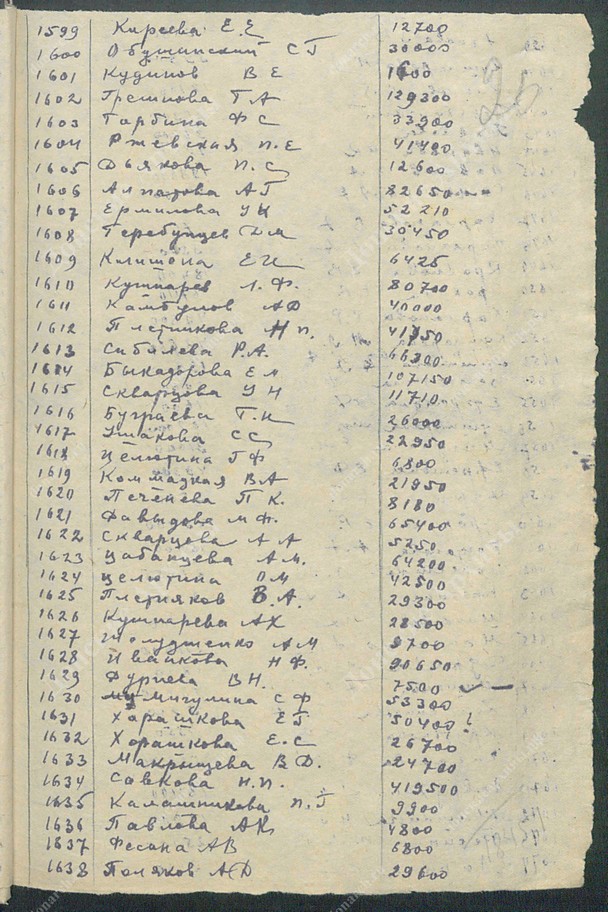 1599 Киреева Е.Е 12700
1600 Обушинский С Г 30000
1601 Кудинов В Е 1600
1602 Грешнова Т А 129300
1603 Горбина Ф С 33900
1604 Ржевская П.Е 41400
1605 Дьякова П.С 12600
1606 Алпатова А Г 82650
1607 Ермилова У К 52210
1608 Теребунцев Д М 30450
1609 Климова Е И 6425
1610 Кушнарев Л.Ф. 80700
1611 Камбулов А Д 40000
1612 Плетникова Н П. 41750
1613 Сибилева Р.А. 66300
1614 Быкадорова Е М 107150
1615 Скварцова У Н 11710
1616 Бугра ева Т.И 26000
1617 Ушакова С С 22950
1618 Целютина Г Ф 6800
1619 Коммадная В А 21950
1620 Печенева П К. 8180
1621 Давыдова М Ф. 65400
1622 Скварцова А А 5250
1623 Цабанцева А М. 64200
1624 Целютина О М 42500
1625 Плетняков В.А. 29300
1626 Кушнарева А Х 28500
1627 А М 9700
1628 Ивайкова Н Ф. 90650
1629 Дурнева В Н. 7500
1630 Мичулина С Ф 53300
1631 Харашкова Е Г 50400
1632 Хорашкова Е.С 26700
1633 Макрищева В Д. 24700
1634 Савкова Н.П. 419500
1635 Калашникова П.Г 9900
1636 Павлова А К 4800
1637 Фесина А В 6800
1638 Поляков А Д 29600